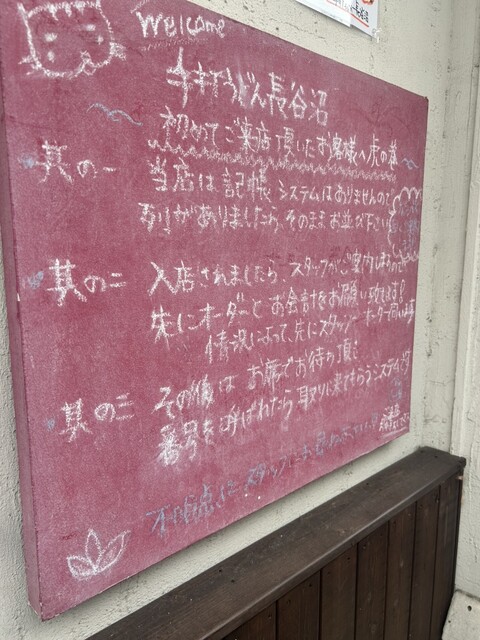 Welcome
うどん長谷沼
初めてご来店頂いたお客様へ虎の巻
其の一
当店は記帳システムはありませんので
列がありましたら、そのままお並び下さい
其の二
入店されましたら、スタッフがご案内しますので
先にオーダーとお会計をお願い致します!
情況によって、先にスタッフがオーダー伺います
其の三
その後は お席でお待ち頂き
番号を呼ばれたら取りに来てもらうシステムです
不明点は スタッフにお